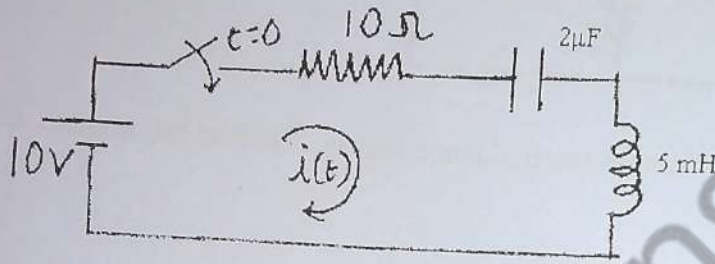 t=0
10Ω
2μF
10V
i(t)
5 mH
ns